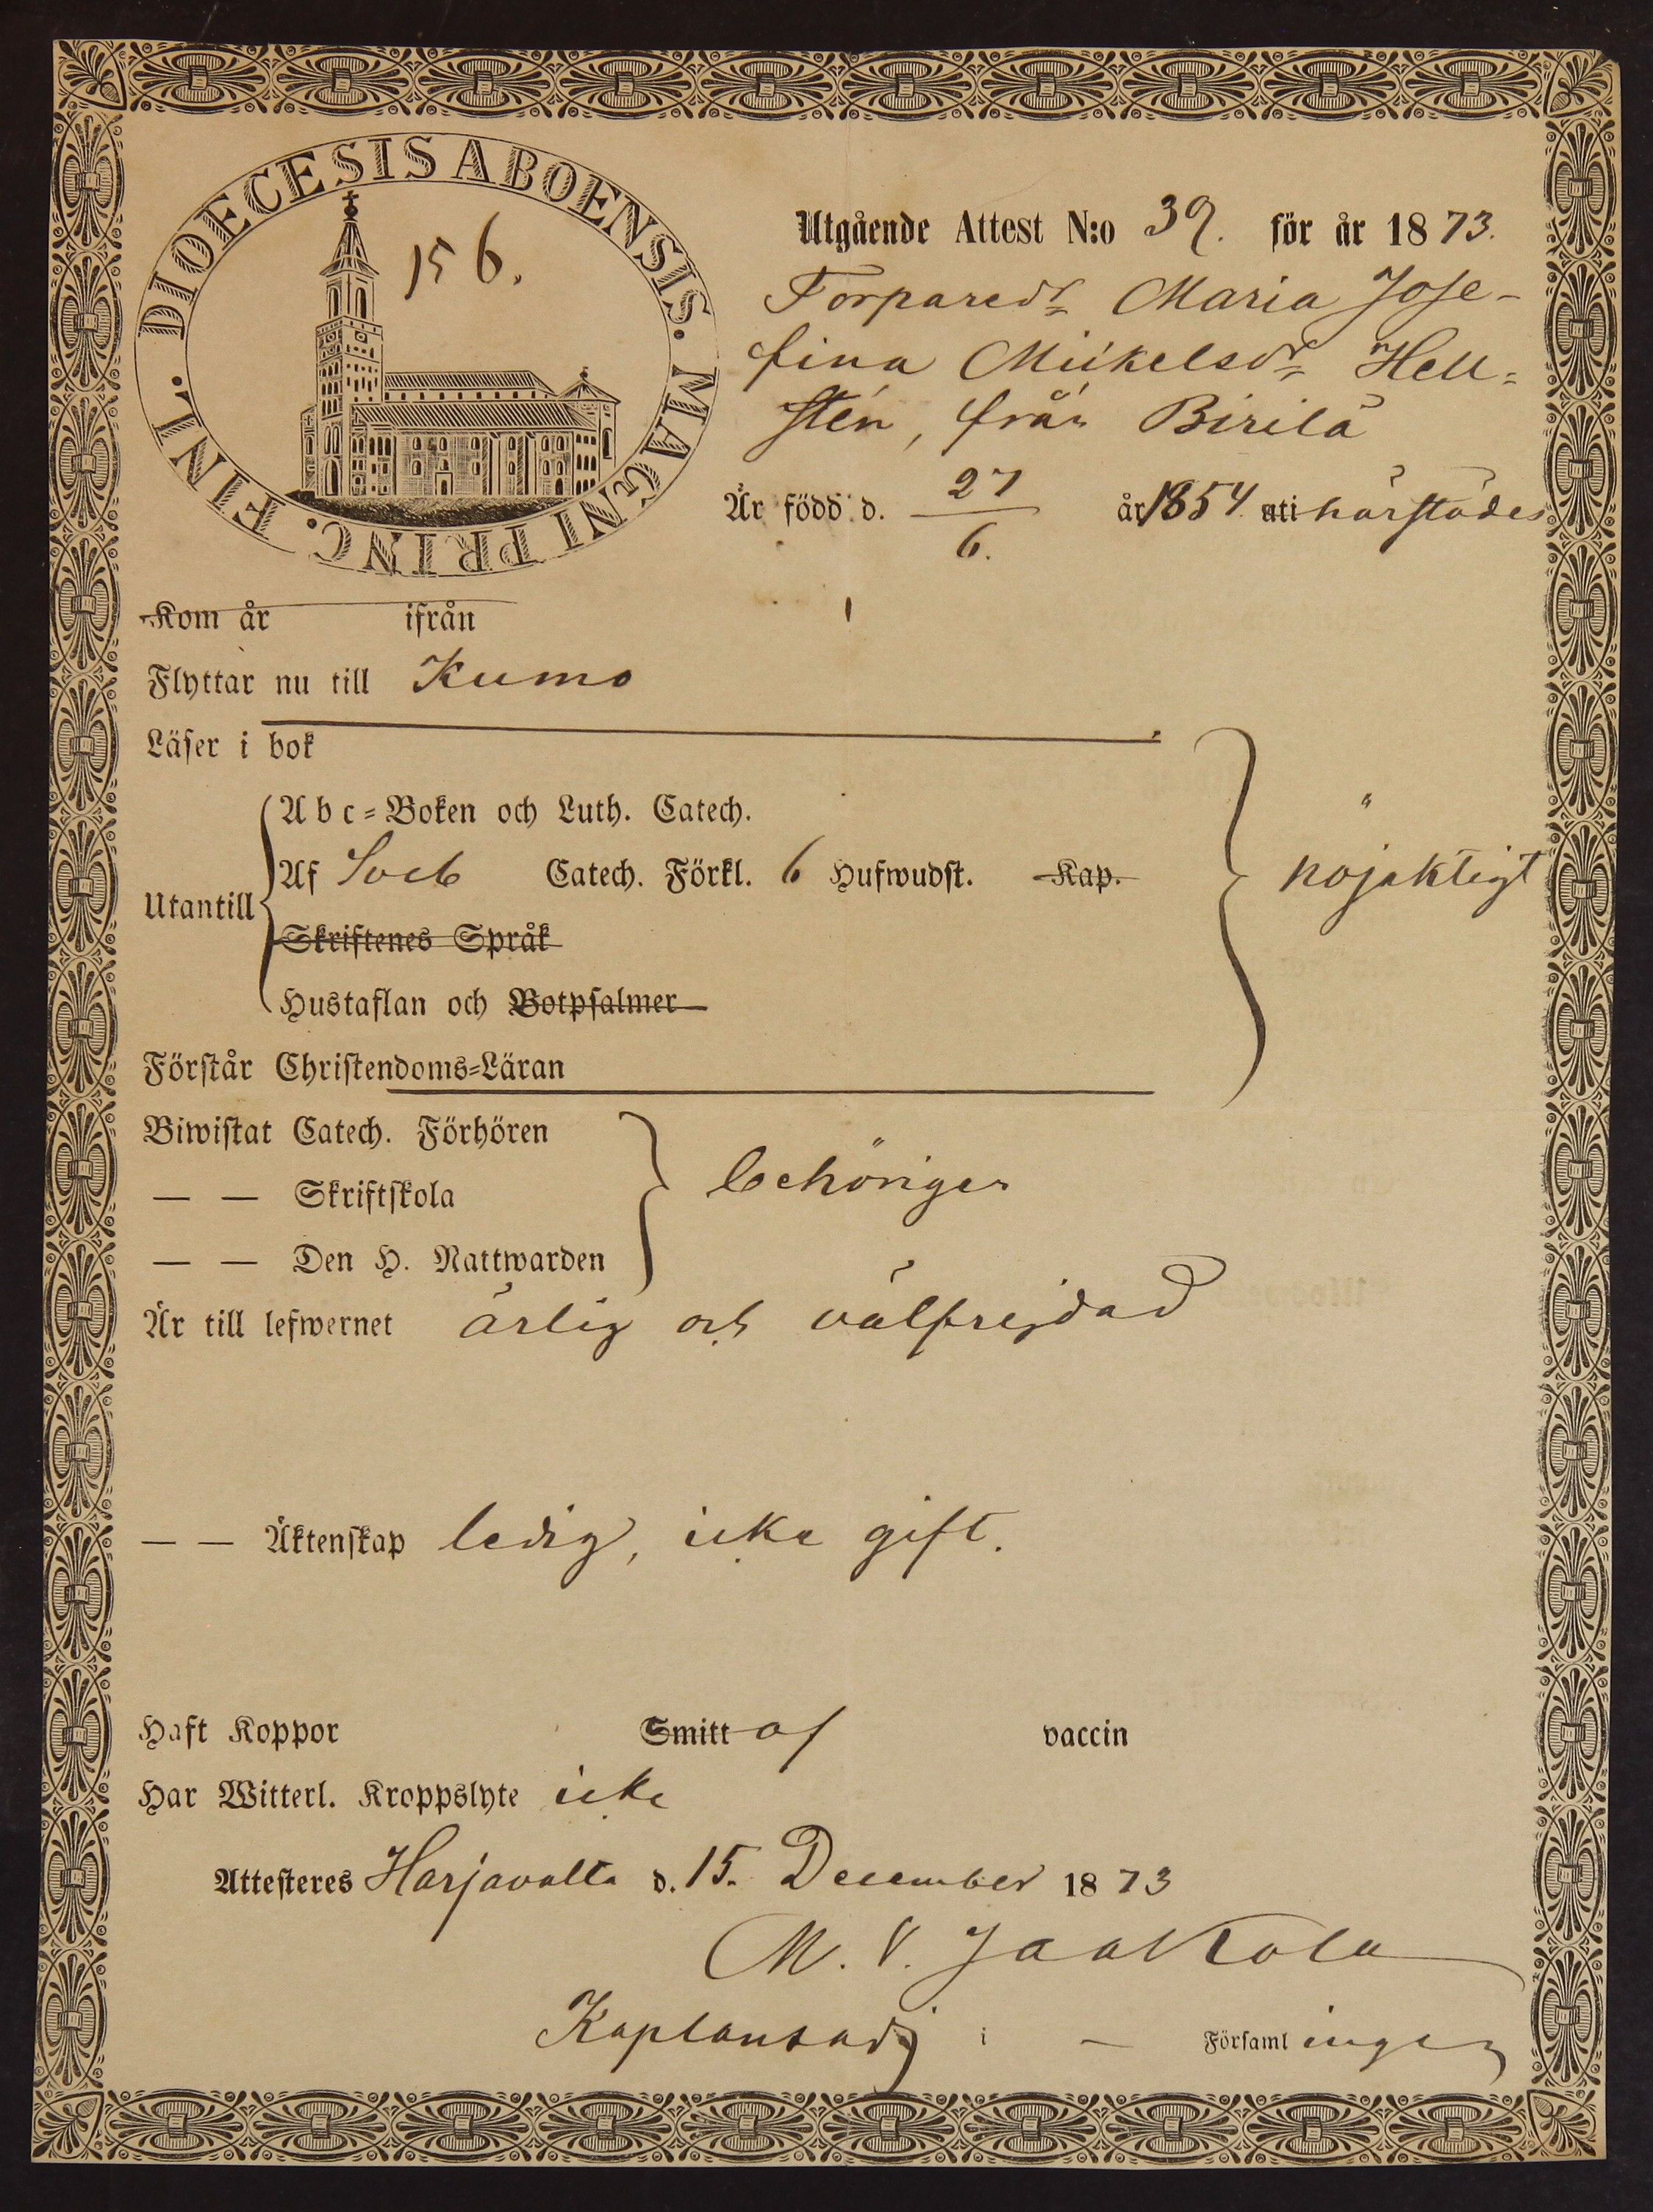 DIOECESIS ABOENSIS. MAGNI PRINC. FINL.
156.
Utgående Attest N:o 39. för år 1873.
Torparedr Maria Jose-
fina Mickelsdr Hell-
stén, från Birilä
Är född d. 27/6. år 1854 uti härstädes
Kom år ifrån
Flyttar nu till Kumo
Läser i bok
Abc-Boken och Luth. Catech.
Utantill
Af Sveb Catech. Förkl. 6 Hufwudst. Kap.
nöjaktigt
Skriftenes Språk
Hustaflan och Botpsalmer
Förstår Christendoms-Läran
Biwistat Catech. Förhören
— — Skriftskola
behörigen
— — Den H. Nattwarden
Är till lefwernet ärlig och välfrejdad
— — Äktenskap ledig, icke gift.
Haft Koppor Smitt af vaccin
Har Witterl. Kroppslyte icke
Attesteres Harjavalta d. 15. December 1873
M. V. Jaakkola
Kaplansadj i — Församlingen